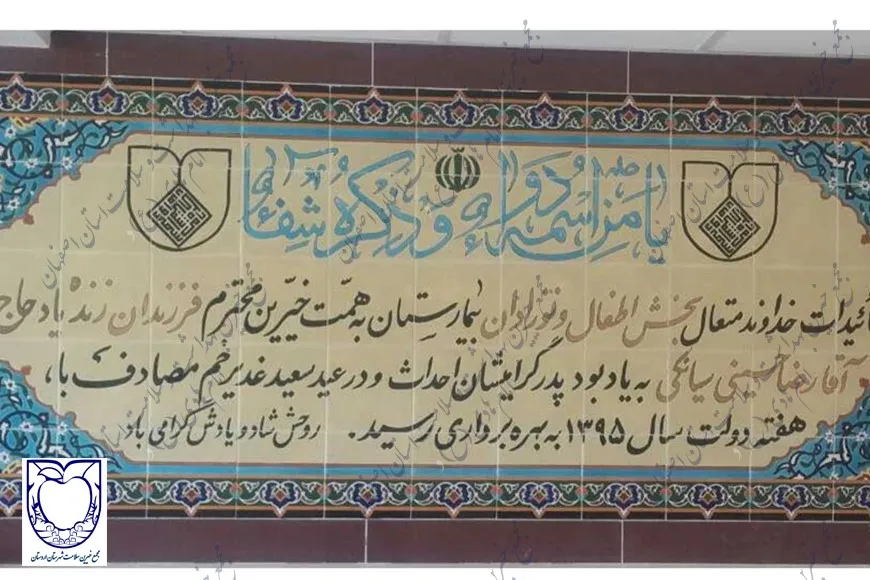 یا من اسمه دواء و ذکره شفاء
تأئیدات خداوند متعال بخش اطفال و نوزادان بیمارستان به همت خیّرین محترم فرزندان زنده یاد حاج
آقا رضا حسینی سیانکی به یادبود پدر گرامیشان احداث و در عید سعید غدیر خم مصادف با،
هفته دولت سال ۱۳۹۵ به بهره برداری رسید. روحش شاد و یادش گرامی باد
مجمع خیرین سلامت شهرستان اردستان